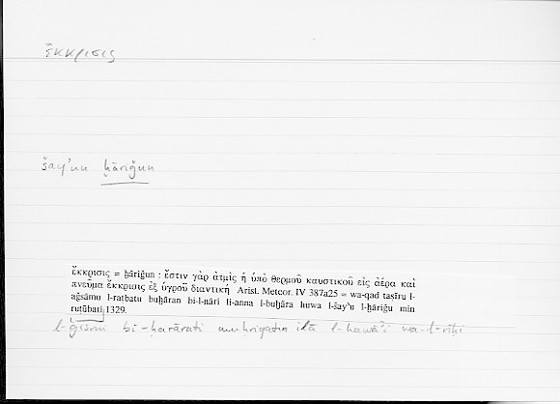 ἔκκρισις
šayʾun ḫāriǧun
ἔκκρισις = ḫāriǧun : ἔστιν γὰρ ἀτμὶς ἡ ὑπὸ θερμοῦ καυστικοῦ εἰς ἀέρα καὶ
πνεῦμα ἔκκρισις ἐξ ὑγροῦ διαντική Arist. Meteor. IV 387a25 = wa-qad taṣīru l-
aǧsāmu l-raṭbatu buḫāran bi-l-nāri li-anna l-buḫāra huwa l-šayʾu l-ḫāriǧu min
ruṭūbati 1329.
l-ǧismi bi-ḥarārati muḥriqatin ilā l-hawāʾi wa-l-rīḥi